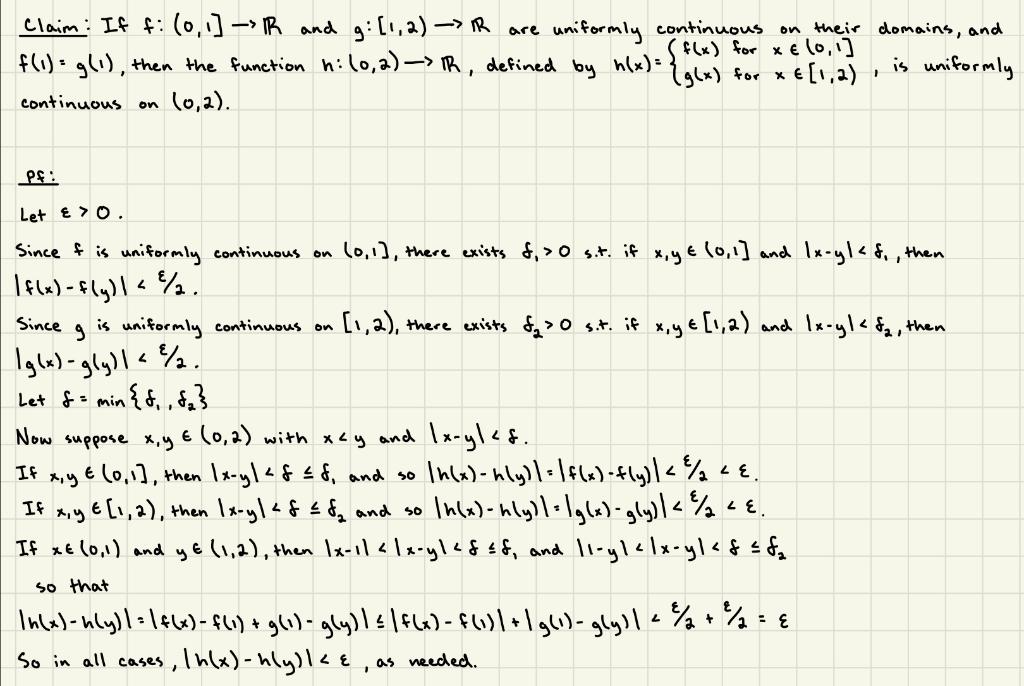 Claim: If f: (0,1] → ℝ and g: [1,2) → ℝ are uniformly continuous on their domains, and
f(1) = g(1), then the function h: (0,2) → ℝ, defined by h(x) = { f(x) for x ∈ (0,1]
g(x) for x ∈ [1,2) , is uniformly
continuous on (0,2).
Pf:
Let ε > 0.
Since f is uniformly continuous on (0,1], there exists δ₁ > 0 s.t. if x,y ∈ (0,1] and |x-y| < δ₁, then
|f(x) - f(y)| < ε/2.
Since g is uniformly continuous on [1,2), there exists δ₂ > 0 s.t. if x,y ∈ [1,2) and |x-y| < δ₂, then
|g(x) - g(y)| < ε/2.
Let δ = min{δ₁, δ₂}
Now suppose x,y ∈ (0,2) with x < y and |x-y| < δ.
If x,y ∈ (0,1], then |x-y| < δ ≤ δ₁ and so |h(x) - h(y)| = |f(x) - f(y)| < ε/2 < ε.
If x,y ∈ [1,2), then |x-y| < δ ≤ δ₂ and so |h(x) - h(y)| = |g(x) - g(y)| < ε/2 < ε.
If x ∈ (0,1) and y ∈ (1,2), then |x-1| < |x-y| < δ ≤ δ₁ and |1-y| < |x-y| < δ ≤ δ₂
so that
|h(x) - h(y)| = |f(x) - f(1) + g(1) - g(y)| ≤ |f(x) - f(1)| + |g(1) - g(y)| < ε/2 + ε/2 = ε
So in all cases, |h(x) - h(y)| < ε, as needed.